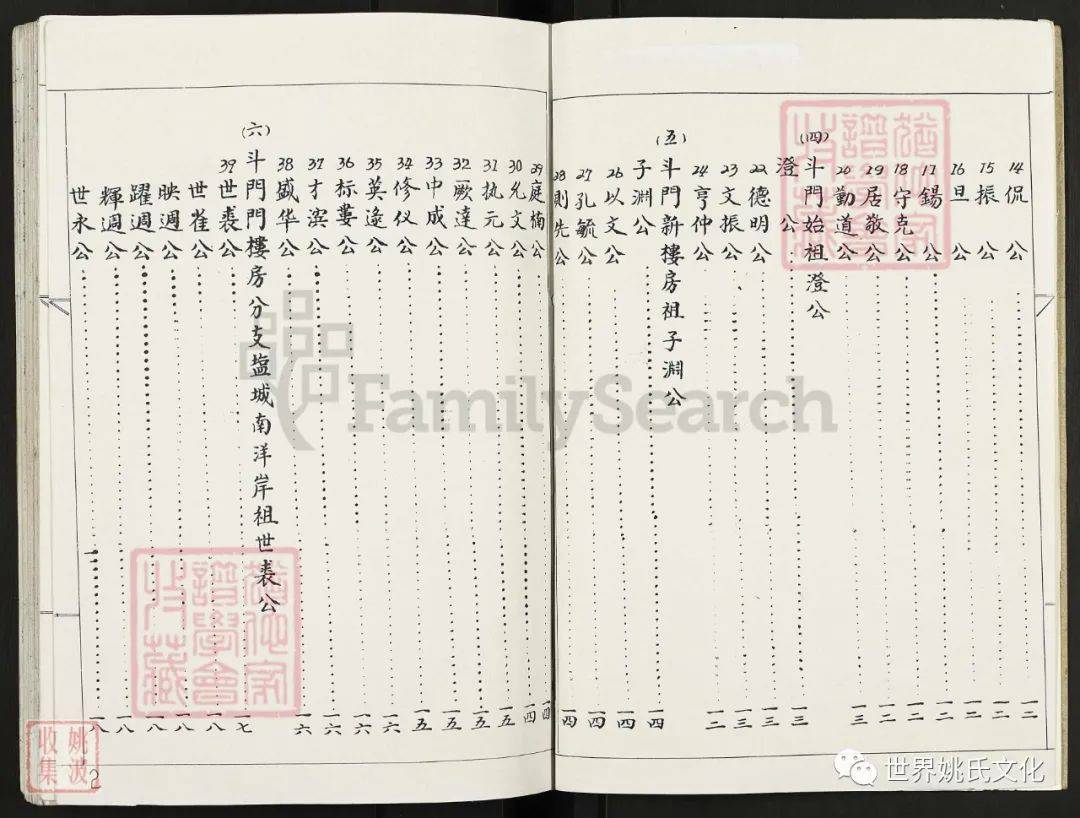 14 侃公 一二
15 振公 一二
16 旦公 一二
17 錫公 一二
18 守克公 一二
19 居敬公 一二
20 勤道公 一三
(四)斗門始祖澄公
澄公 一三
22 德明公 一三
23 文振公 一三
24 亨仲公 一二
(五)斗門新樓房祖子淵公
子淵公 一四
26 以文公 一四
27 孔毓公 一四
28 則先公 一四
29 庭楠公 一四
30 允文公 一四
31 执元公 一五
32 厥達公 一五
33 中成公 一五
34 修仪公 一五
35 英逵公 一六
36 标萋公 一六
37 才滨公 一六
38 盛华公 一六
(六)斗門門樓房分支塩城南洋岸祖世裘公
39 世裘公 一七
世萑公 一八
映週公 一八
躍週公 一八
輝週公 一八
世永公 一八
2
姚波
收集
FamilySearch
世界姚氏文化